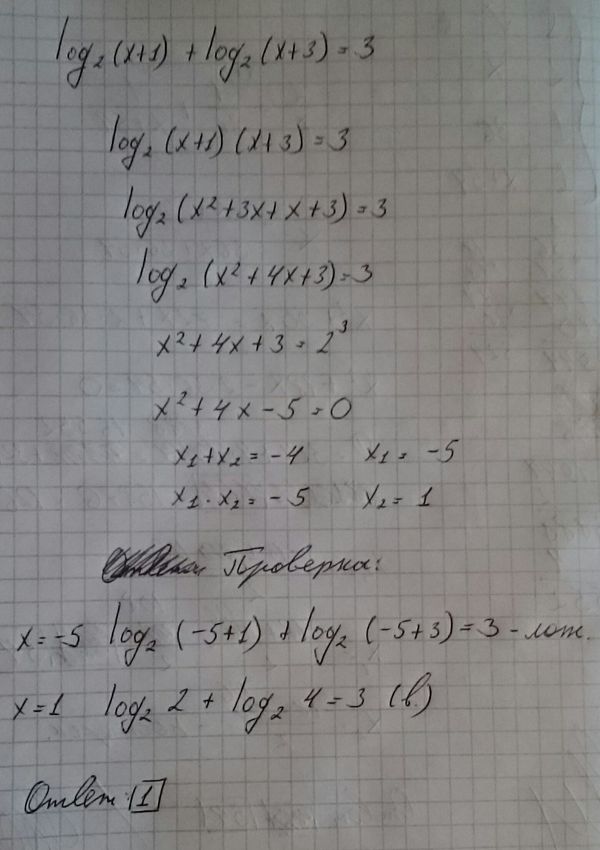 log₂(x+1) + log₂(x+3) = 3
log₂(x+1)(x+3) = 3
log₂(x²+3x+x+3) = 3
log₂(x²+4x+3) = 3
x²+4x+3 = 2³
x²+4x-5 = 0
x₁+x₂ = -4 x₁ = -5
x₁·x₂ = -5 x₂ = 1
Проверка:
x = -5 log₂(-5+1) + log₂(-5+3) = 3 - лож.
x = 1 log₂ 2 + log₂ 4 = 3 (в.)
Ответ: 1